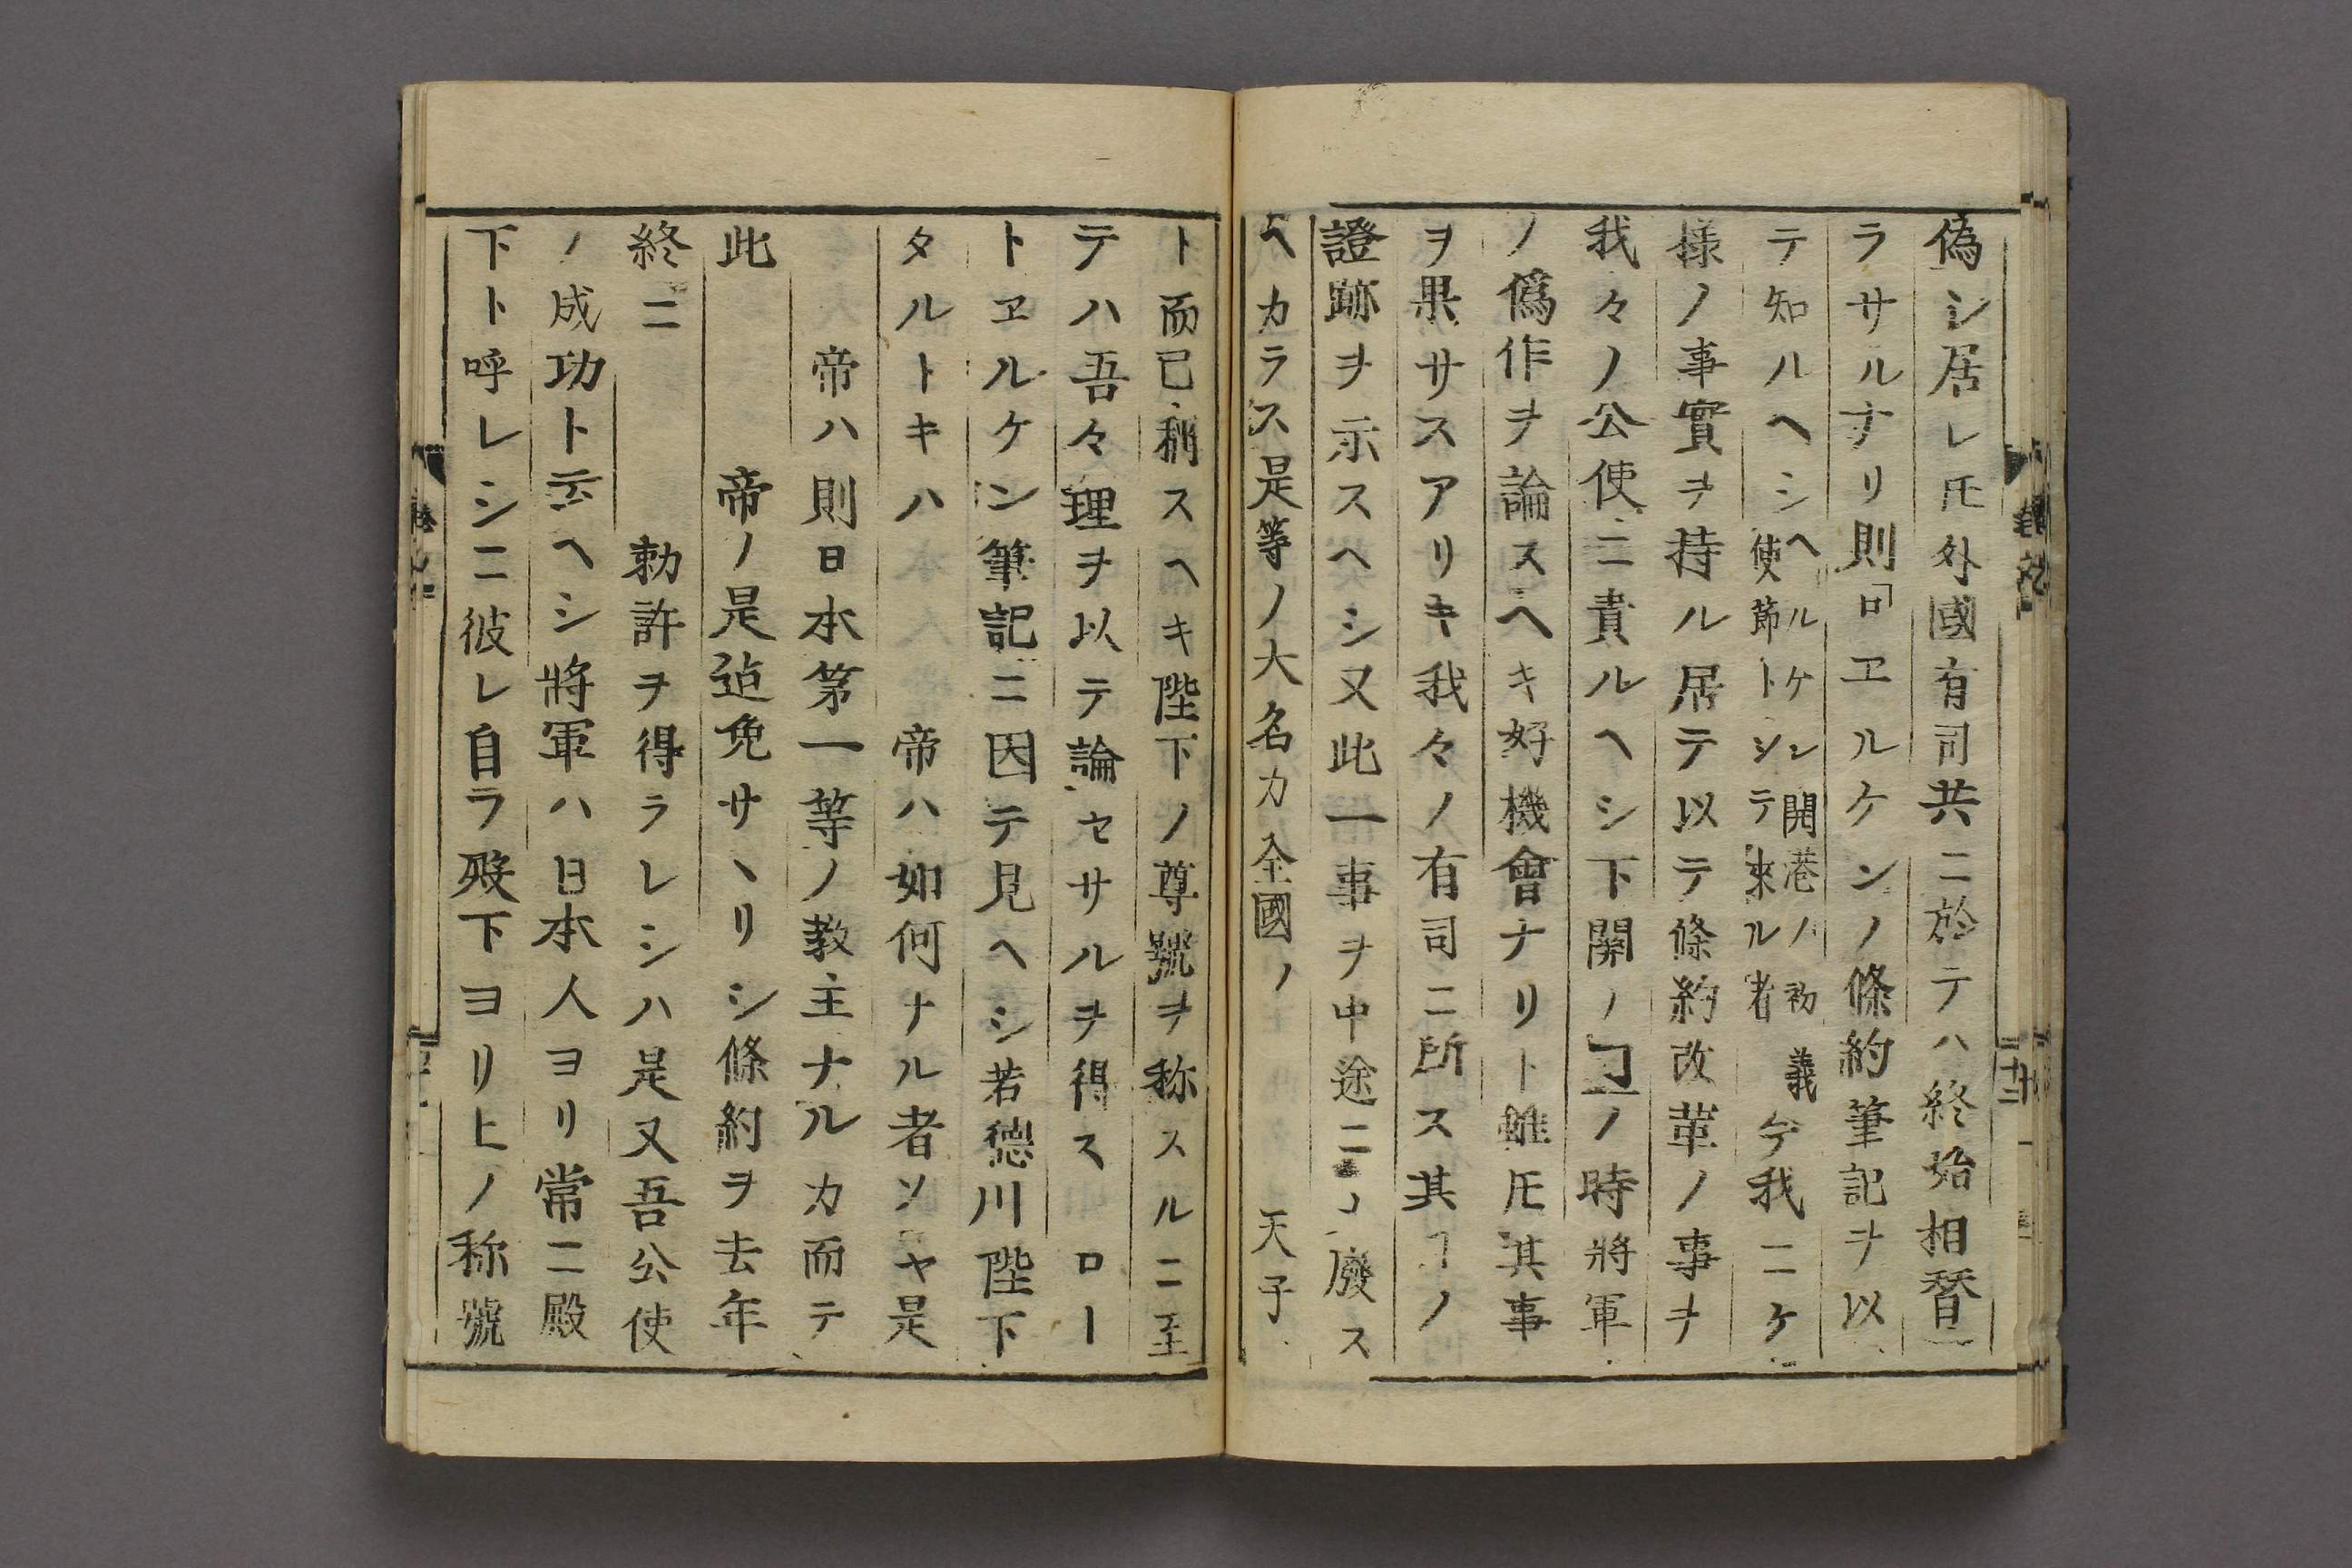 偽シ居レ𪜈外國有司共ニ於テハ終始相替
ラサルヿナリ則「ロヱルケンノ條約筆記ヲ以
テ知ルヘシ
ヘルケレン開港ノ初義
使節トシテ来ル者
今我ニケ
様ノ事實ヲ持ル居テ以テ條約改革ノ事ヲ
我々ノ公使ニ責ルヘシ下關ノ「コ」ノ時將軍
ノ僞作ヲ論スヘキ好機會ナリト雖𪜈其事
ヲ果サスアリキ我々ノ有司ニ所ス其ヿノ
證跡ヲ示スヘシ又此一事ヲ中途ニノ廢ス
ヘカラス是等ノ大名カ全國ノ 天子
ト而已稱スヘキ陛下ノ尊號ヲ称スルニ至
テハ吾々理ヲ以テ論セサルヲ得スロー
トヱルケン筆記ニ因テ見ヘシ若徳川陛下
タルトキハ 帝ハ如何ナル者ソヤ是
帝ハ則日本第一等ノ教主ナルカ而テ
此 帝ノ是迠免サヽリシ條約ヲ去年
終ニ 勅許ヲ得ラレシハ是又吾公使
ノ成功ト云ヘシ將軍ハ日本人ヨリ常ニ殿
下ト呼レシニ彼レ自ラ殿下ヨリヒノ称號